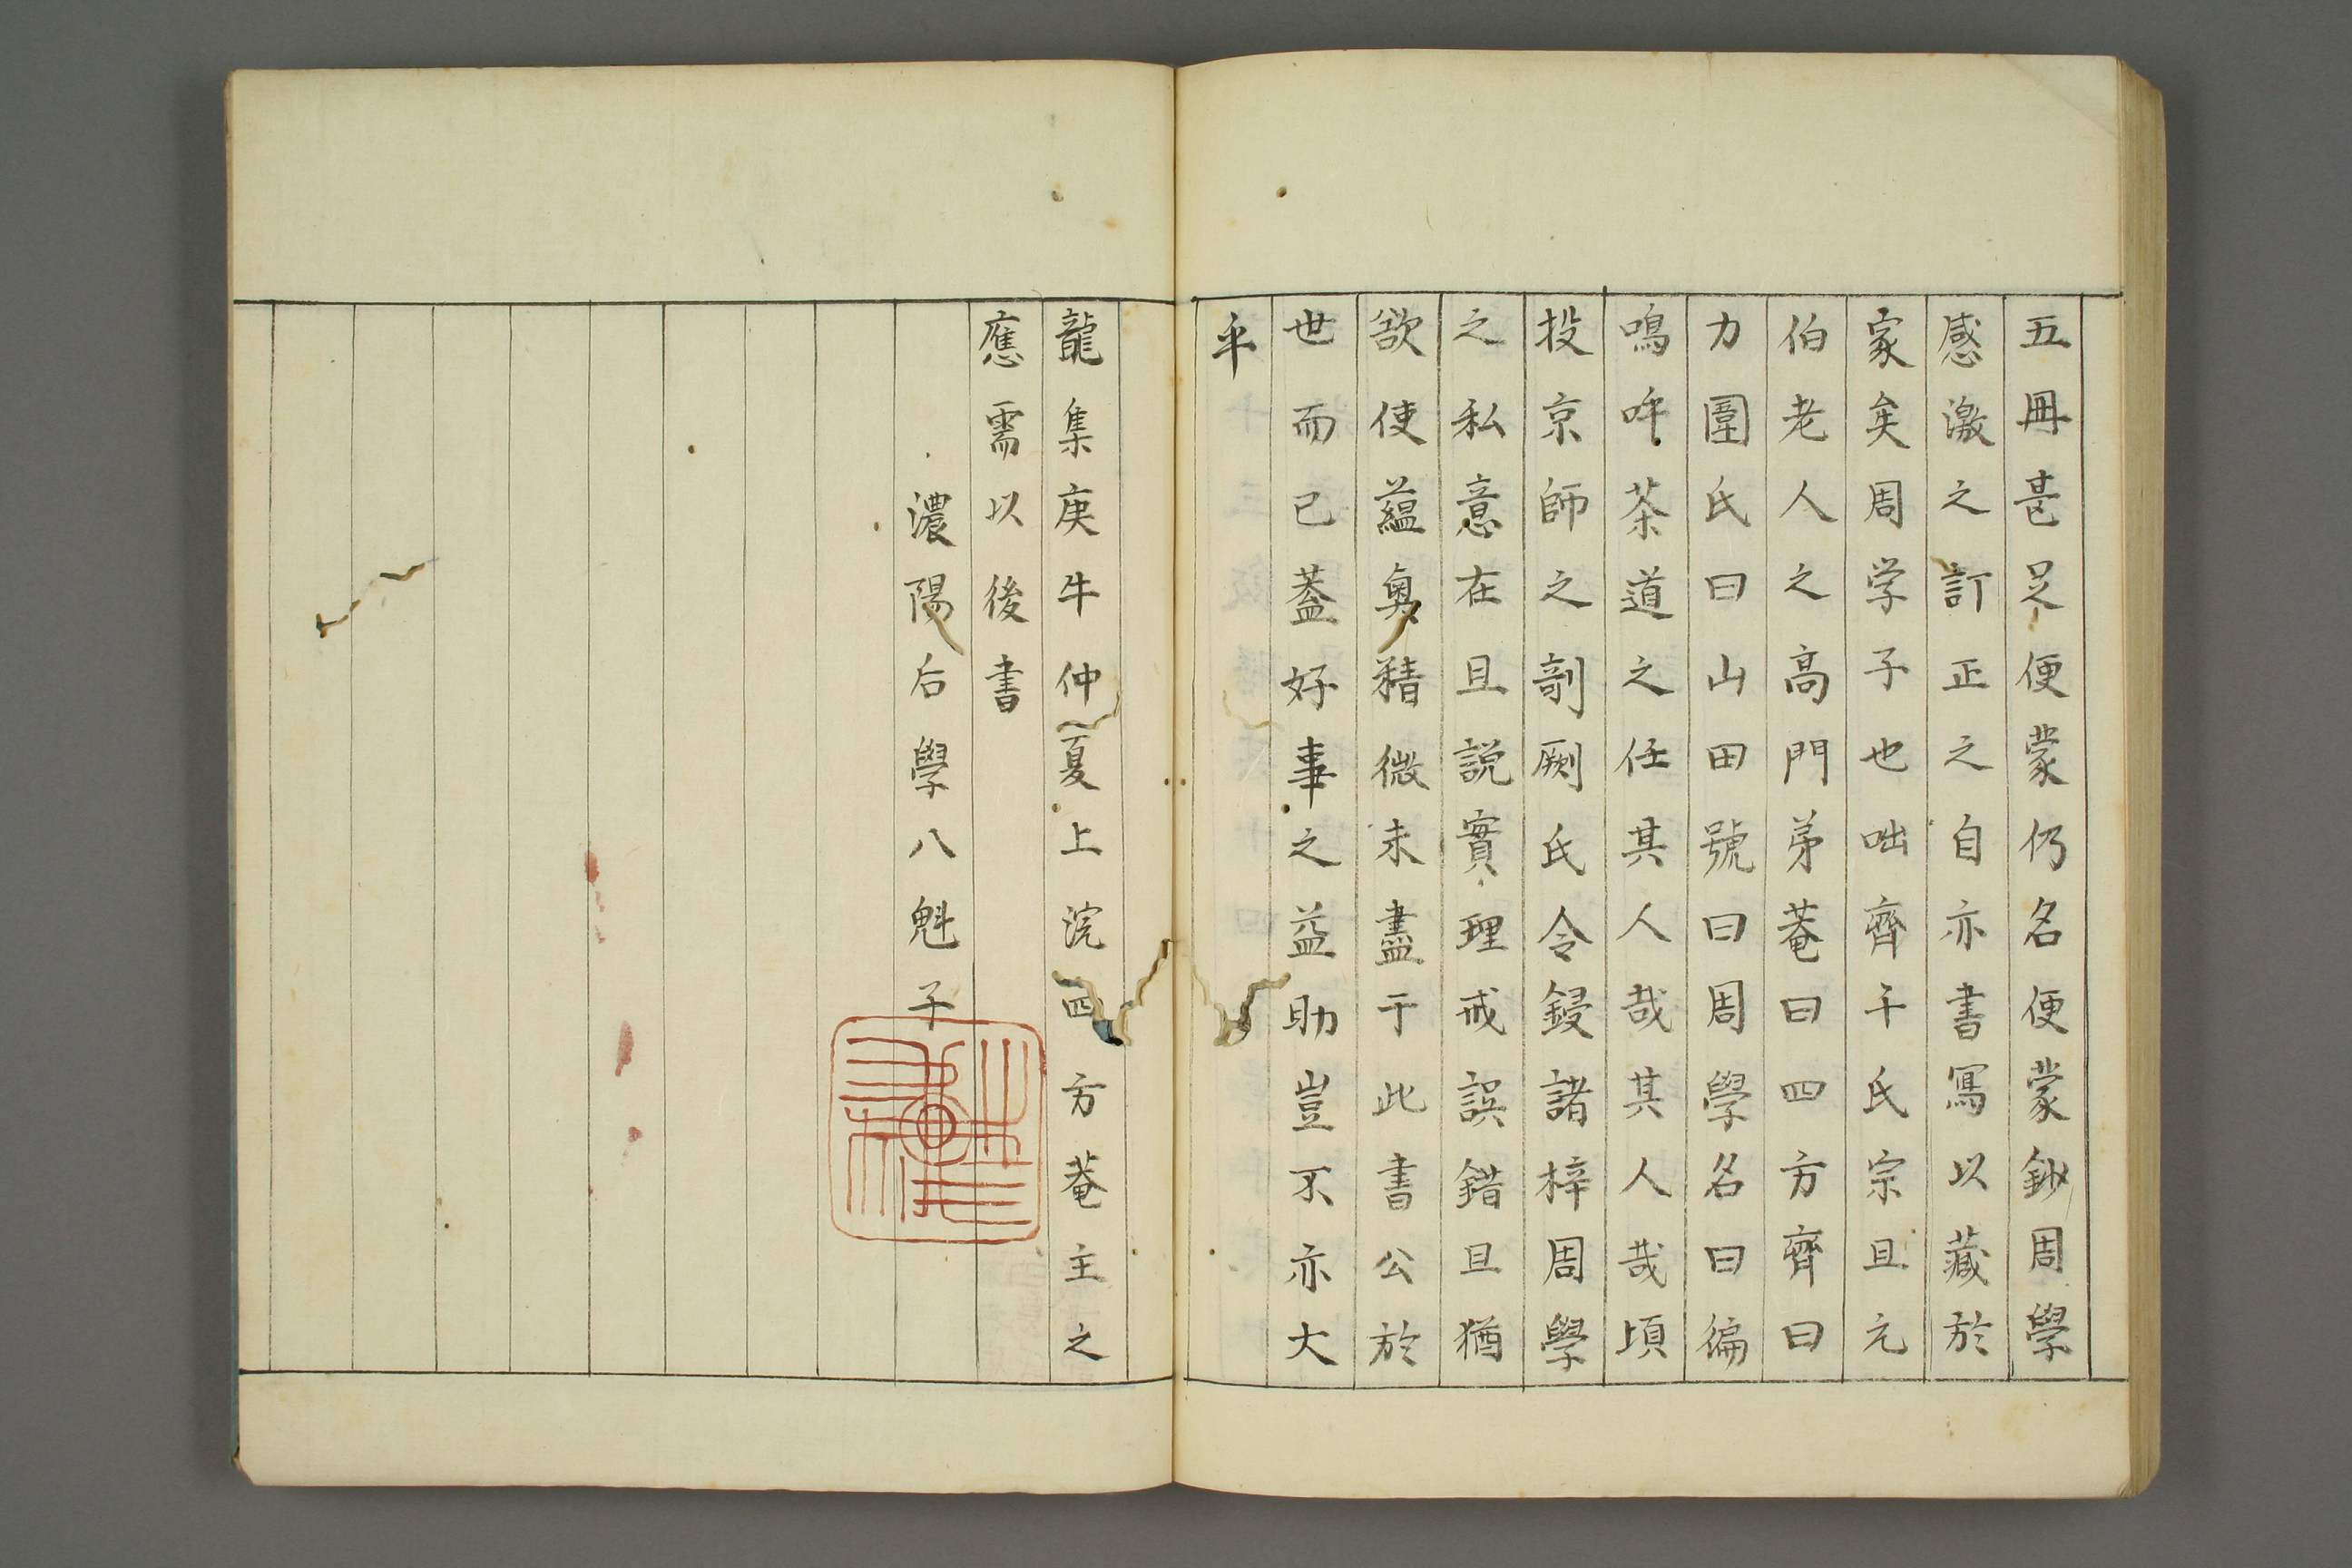 五冊甚足便蒙仍名便蒙鈔周學
感激之訂正之自亦書寫以藏於
家矣周学子也咄齊千氏宗旦元
伯老人之高門弟菴曰四方齊曰
力圍氏曰山田號曰周學名曰徧
鳴吘茶道之任其人哉其人哉頃
投京師之剞劂氏令鋟諸梓周學
之私意在且説實理戒誤錯且猶
欲使蘊奥精微未盡于此書公於
世而已蓋好事之益助豈不亦大
乎
龍集庚牛仲夏上浣四方菴主之
應需以後書
濃陽后學八魁子